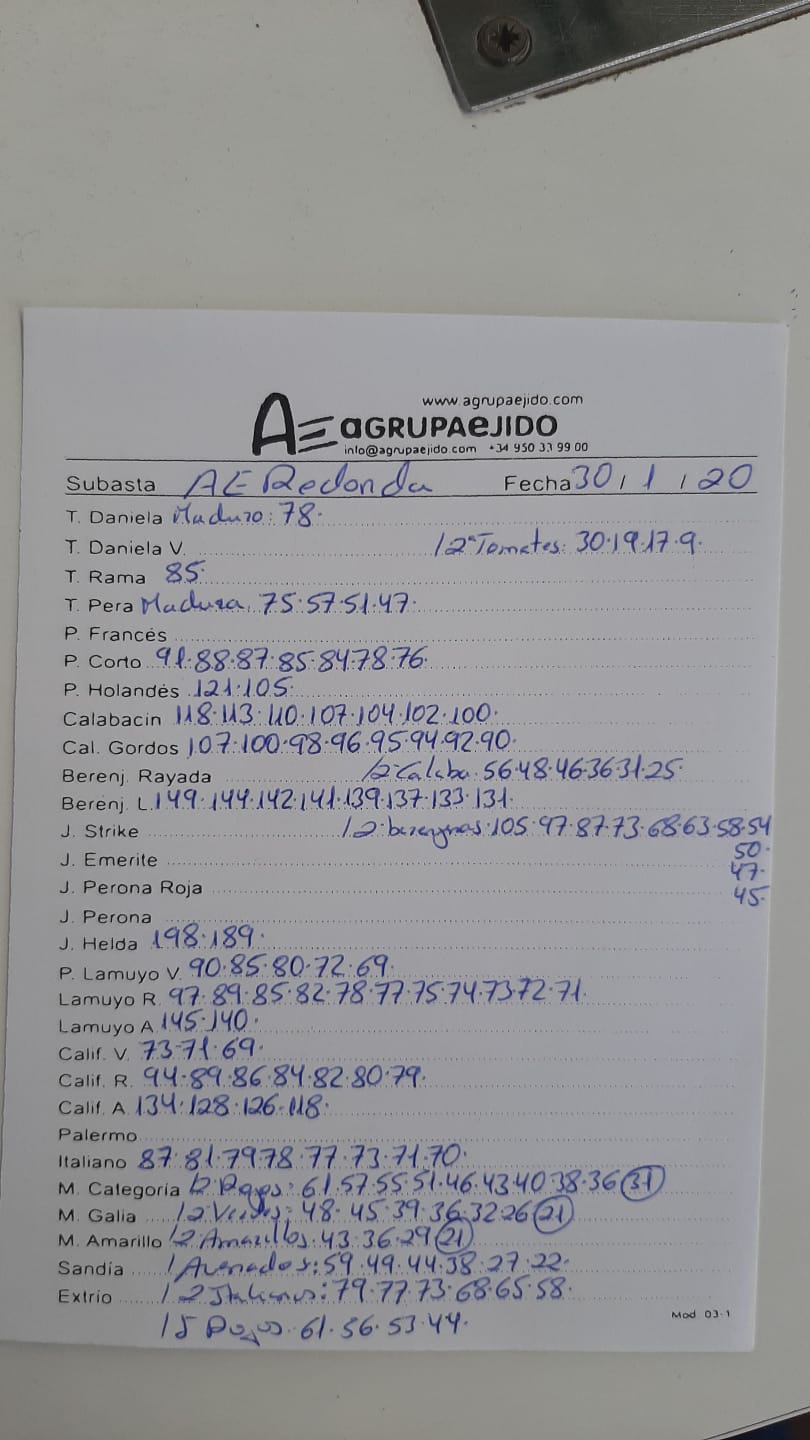 www.agrupaejido.com
AE aGRUPAeJIDO
info@agrupaejido.com +34 950 33 99 00
Subasta AE Redonda Fecha 30/1/20
T. Daniela Maduro: 78.
T. Daniela V. 12ª Tomates: 30.19.17.9.
T. Rama 85.
T. Pera Madura 75.57.51.47.
P. Francés
P. Corto 91.88.87.85.84.78.76.
P. Holandés 121.105.
Calabacin 118.113.110.107.104.102.100.
Cal. Gordos 107.100.98.96.95.94.92.90.
Berenj. Rayada 12 Calaba. 56.48.46.36.31.25.
Berenj. L. 149.144.142.141.139.137.133.131.
J. Strike 12 berengenas. 105.97.87.73.68.63.58.54
J. Emerite 50.
47.
J. Perona Roja 45.
J. Perona
J. Helda 198.189.
P. Lamuyo V. 90.85.80.72.69.
Lamuyo R. 97.89.85.82.78.77.75.74.73.72.71.
Lamuyo A 145.140.
Calif. V. 73.71.69.
Calif. R. 94.89.86.84.82.80.79.
Calif. A. 134.128.126.118.
Palermo
Italiano 87.81.79.78.77.73.71.70.
M. Categoría 12 Rojos: 61.57.55.51.46.43.40.38.36 31
M. Galia 12 Verdes: 48.45.39.36.32.26 21
M. Amarillo 12 Amarillos. 43.36.29 21
Sandía 1 Asurados: 59.49.44.38.27.22.
Extrio 12 Italianos: 79.77.73.68.65.58.
15 Rojos. 61.56.53.44.
Mod 03-1